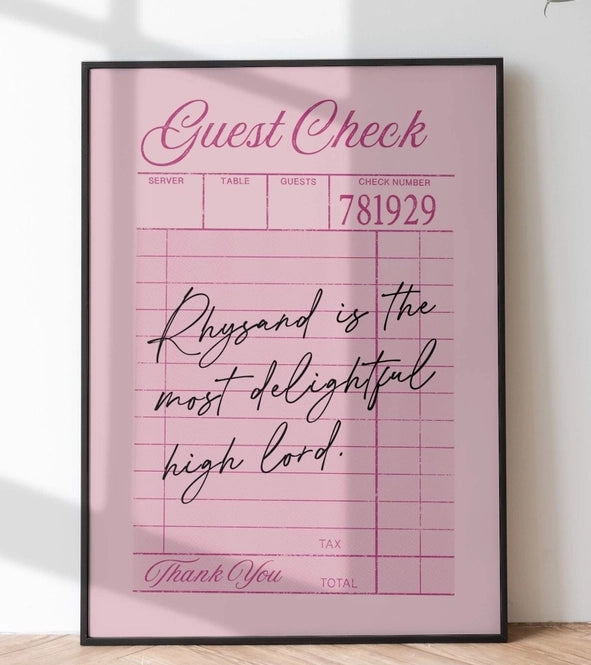 Guest Check
SERVER TABLE GUESTS CHECK NUMBER
781929
Rhysand is the
most delightful
high lord.
TAX
Thank You TOTAL